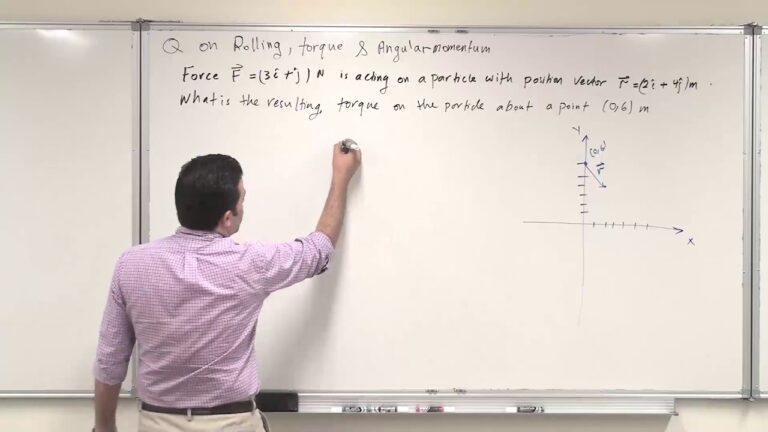 Q on Rolling, torque & Angular momentum
Force F⃗ = (3î + ĵ) N is acting on a particle with position vector r⃗ = (2î + 4ĵ) m.
What is the resulting torque on the particle about a point (0,6) m
Y
(0,6)
r⃗
X